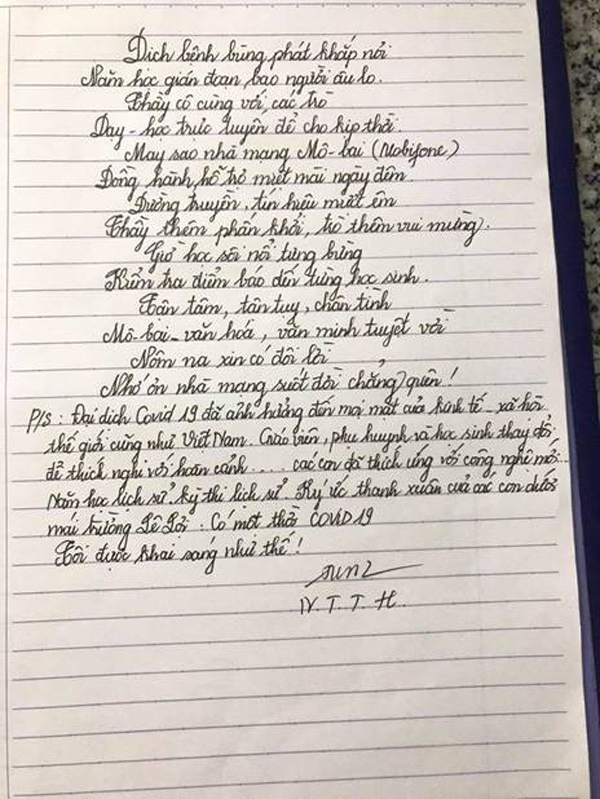 Dịch bệnh bùng phát khắp nơi
Năm học gián đoạn, bao người âu lo.
Thầy cô cùng với các trò
Dạy - học trực tuyến để cho kịp thời.
May sao nhà mạng Mô-bai (Mobifone)
Đồng hành, hỗ trợ miệt mài ngày đêm.
Đường truyền, tín hiệu mượt êm
Thầy thêm phấn khởi, trò thêm vui mừng.
Giờ học sôi nổi tưng bừng
Kiểm tra điểm báo đến từng học sinh.
Tận tâm, tận tụy, chân tình
Mô-bai - văn hoá, văn minh tuyệt vời
Nôm na xin có đôi lời
Nhớ ơn nhà mạng suốt đời chẳng quên!
P/S: Đại dịch Covid 19 đã ảnh hưởng đến mọi mặt của kinh tế - xã hội
thế giới cũng như Việt Nam. Giáo viên, phụ huynh và học sinh thay đổi
để thích nghi với hoàn cảnh.... các con đã thích ứng với công nghệ mới...
Năm học lịch sử, kỳ thi lịch sử. Ký ức thanh xuân của các con dưới
mái trường Lê Lợi: Có một thời COVID 19
Tôi được khai sáng như thế!
N. T. T. H.